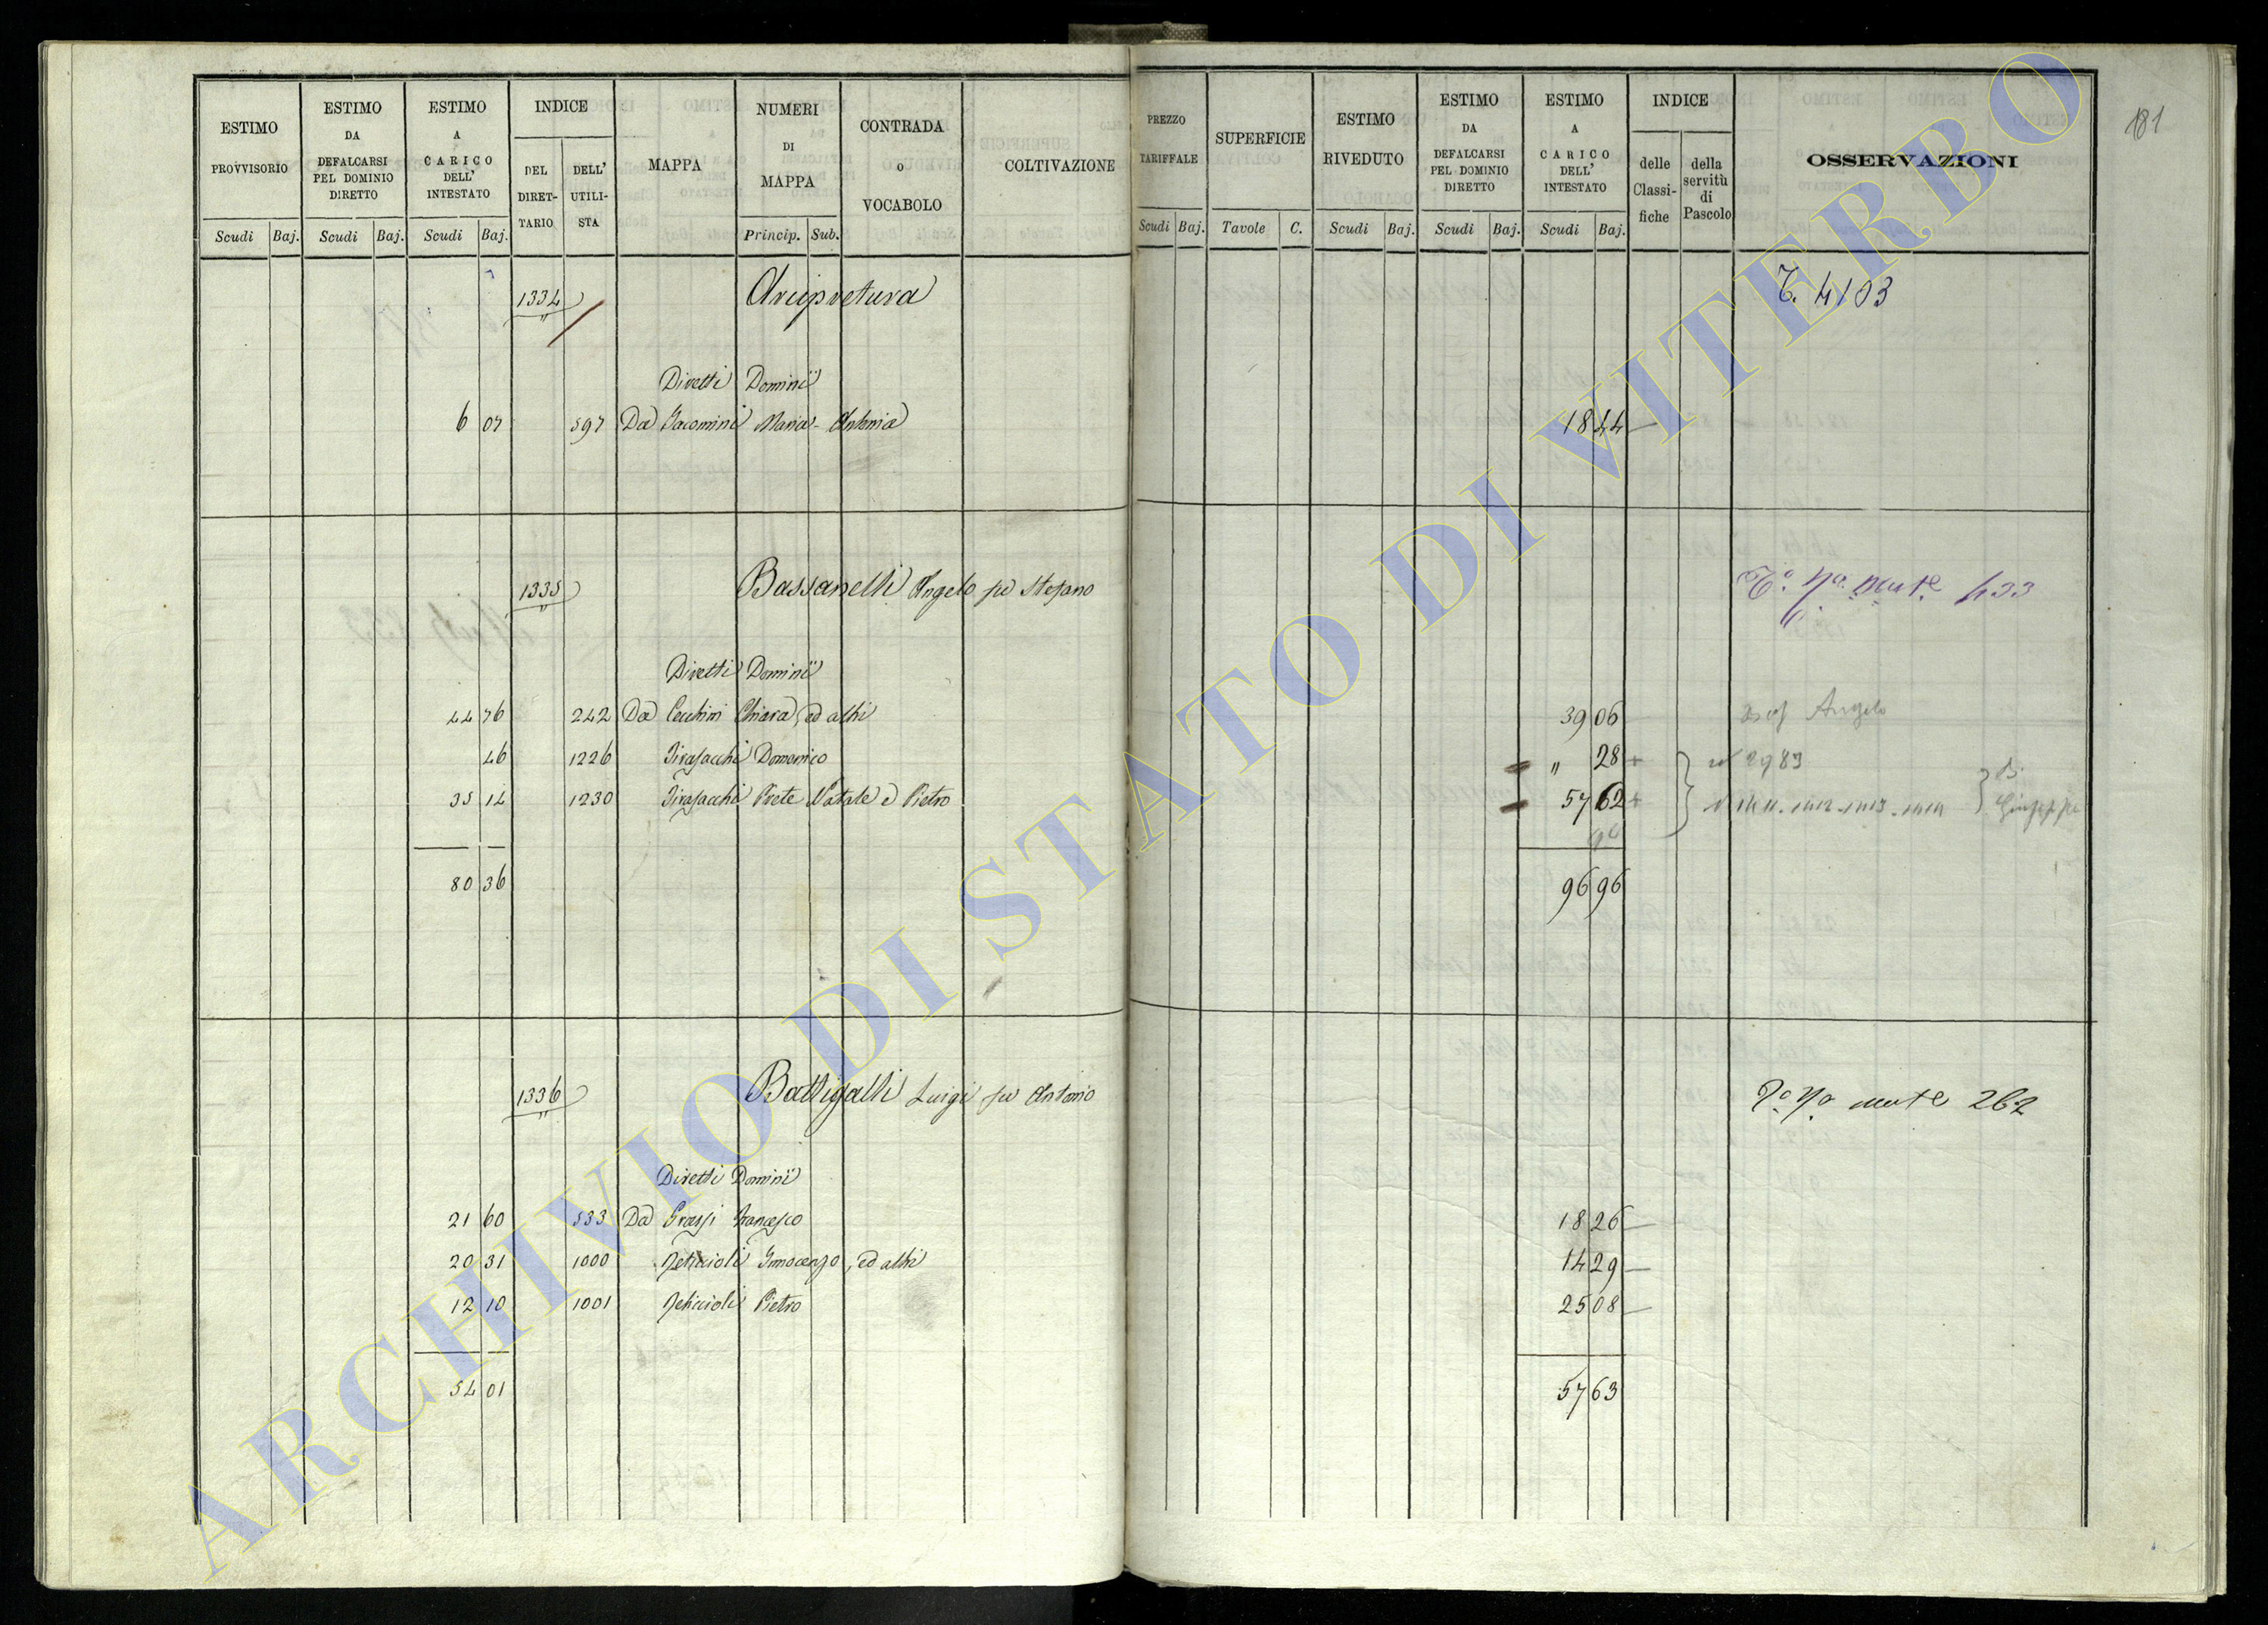 ESTIMO PROVVISORIO Scudi Baj.
ESTIMO DA DEFALCARSI PEL DOMINIO DIRETTO Scudi Baj.
ESTIMO A CARICO DELL' INTESTATO Scudi Baj.
INDICE DEL DIRET-TARIO DELL' UTILI-STA
MAPPA
NUMERI DI MAPPA Princip. Sub.
CONTRADA o VOCABOLO
COLTIVAZIONE
PREZZO TARIFFALE Scudi Baj.
SUPERFICIE Tavole C.
ESTIMO RIVEDUTO Scudi Baj.
ESTIMO DA DEFALCARSI PEL DOMINIO DIRETTO Scudi Baj.
ESTIMO A CARICO DELL' INTESTATO Scudi Baj.
INDICE delle Classi-fiche della servitù di Pascolo
OSSERVAZIONI
181
1334 Arcipretura T. 4103
Diretti Dominii
6 07 597 Da Jacomini Maria-Antonia 18 44
1335 Bassanelli Angelo fu Stefano 433
Diretti Dominii
44 76 242 Da Cecchini Chiara, ed altri 39 06 Angelo
46 1226 Tirasacchi Domenico " 28 + 2983
35 14 1230 Tirasacchi Prete Natale e Pietro 57 62 + Giuseppe
80 36 96 96
1336 Battigalli Luigi fu Antonio 262
Diretti Dominii
21 60 533 Da Grassi Francesco 18 26
20 31 1000 Petriccioli Innocenzo, ed altri 14 29
12 10 1001 Petriccioli Pietro 25 08
54 01 57 63
ARCHIVIO DI STATO DI VITERBO